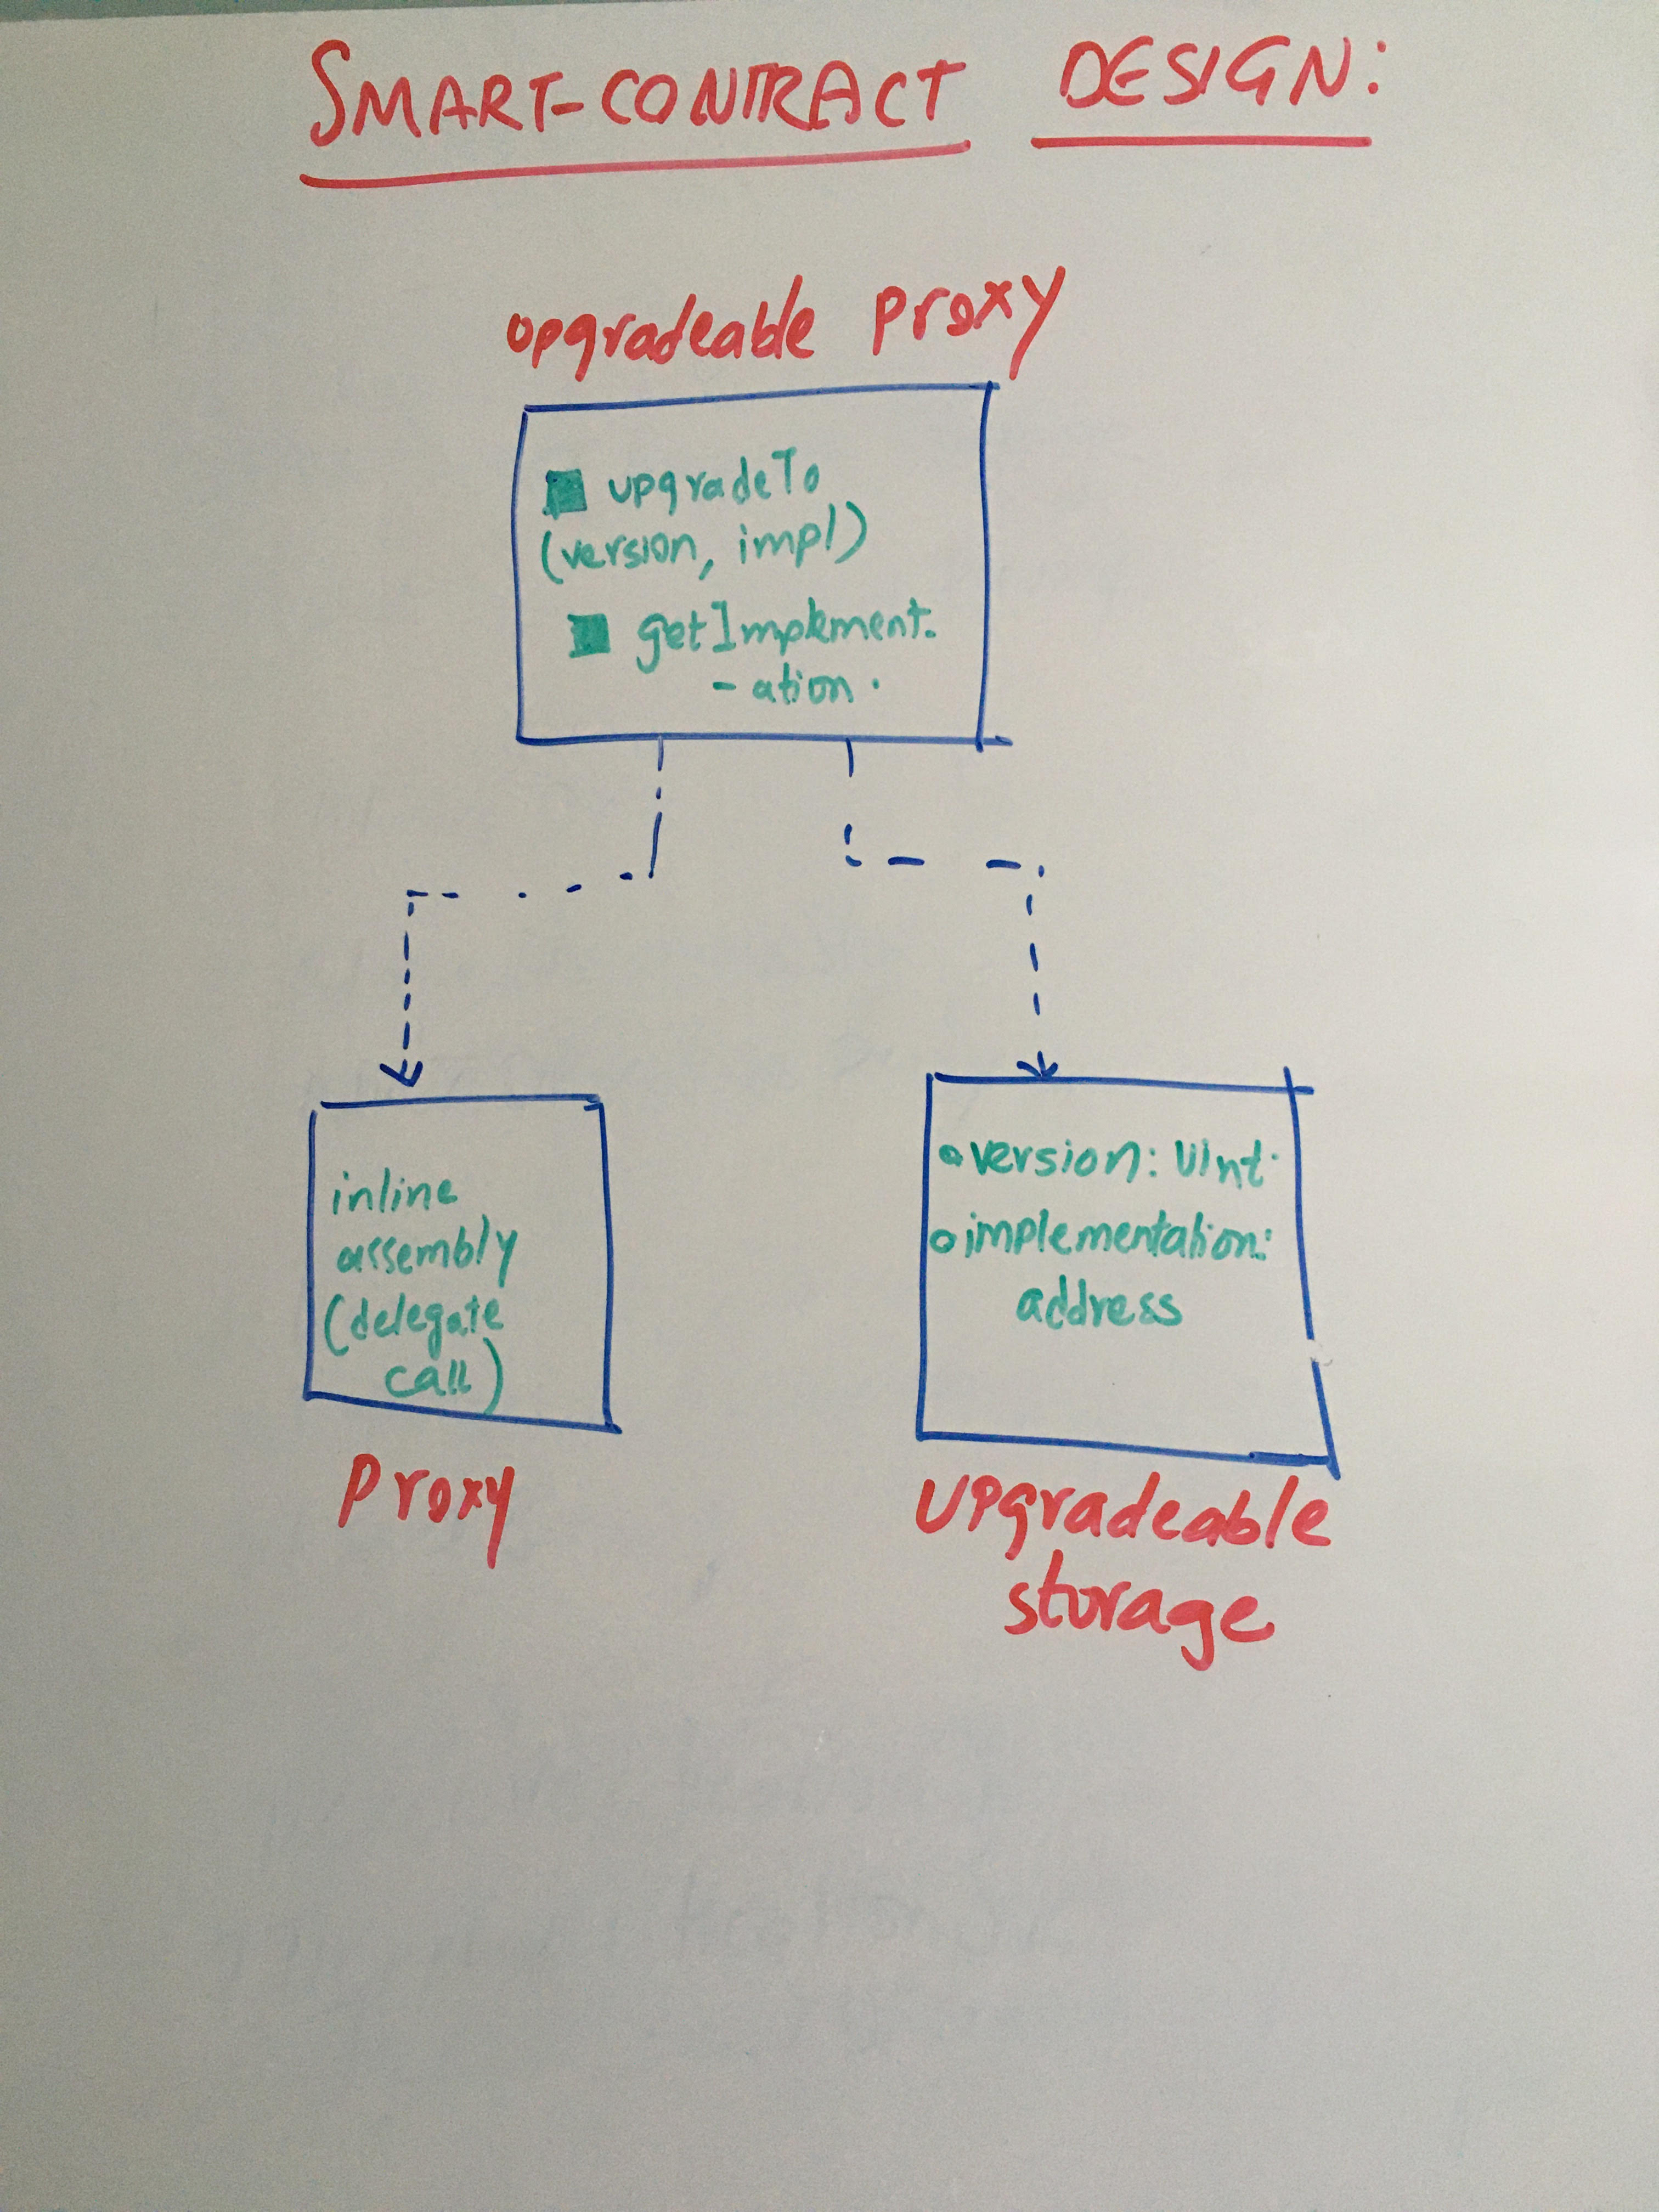 SMART-CONTRACT DESIGN:
upgradeable proxy
upgradeTo
(version, impl)
getImplement.
- ation.
inline
assembly
(delegate
call)
Proxy
version: UInt.
implementation:
address
Upgradeable
storage